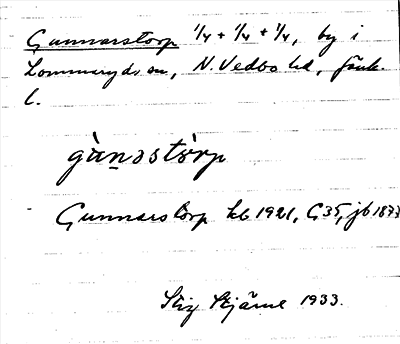 Gunnarstorp 1/4 + 1/4 + 1/4, by i
Lommaryds sn, N. Vedbo hd, Jönk.
l.
gùn̲əstòrp
Gunnarstorp kb 1921, G35, jb 1877
Stig Stjärne 1933.